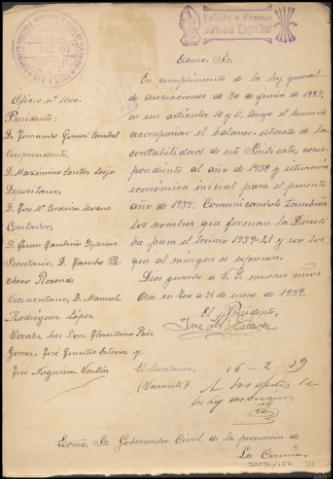 Saludo a Franco
¡Arriba España!
Excmo. Sr.
En cumplimiento de la ley general
de asociaciones de 30 de junio de 1887,
en sus artículos 10 y 11, tengo el honor de
acompañar el balance-extracto de la
contabilidad de este Sindicato, corres-
pondiente al año de 1938 y situación
económica inicial para el presente
año de 1939. Comunicándole también
los nombres que forman la Directi-
va para el trienio 1939-41 y son los
que al margen se expresan.
Dios guarde a V.E. muchos años
31 de enero de 1939.
El Presidente,
José
Oficio nº Uno.
Presidente:
D. Fernando
D. Maximino Santos
Depositario,
D. José Mª
Contador,
Secretario, D. Jacobo
Rosende
Vicesecretario, D. Manuel
Rodríguez López
Vocales
Gomez, José
José Nogueira
El Secretario,
(Vacante)
16-2-39
A los efectos de
Excmo. Sr. Gobernador Civil de la provincia de
La Coruña